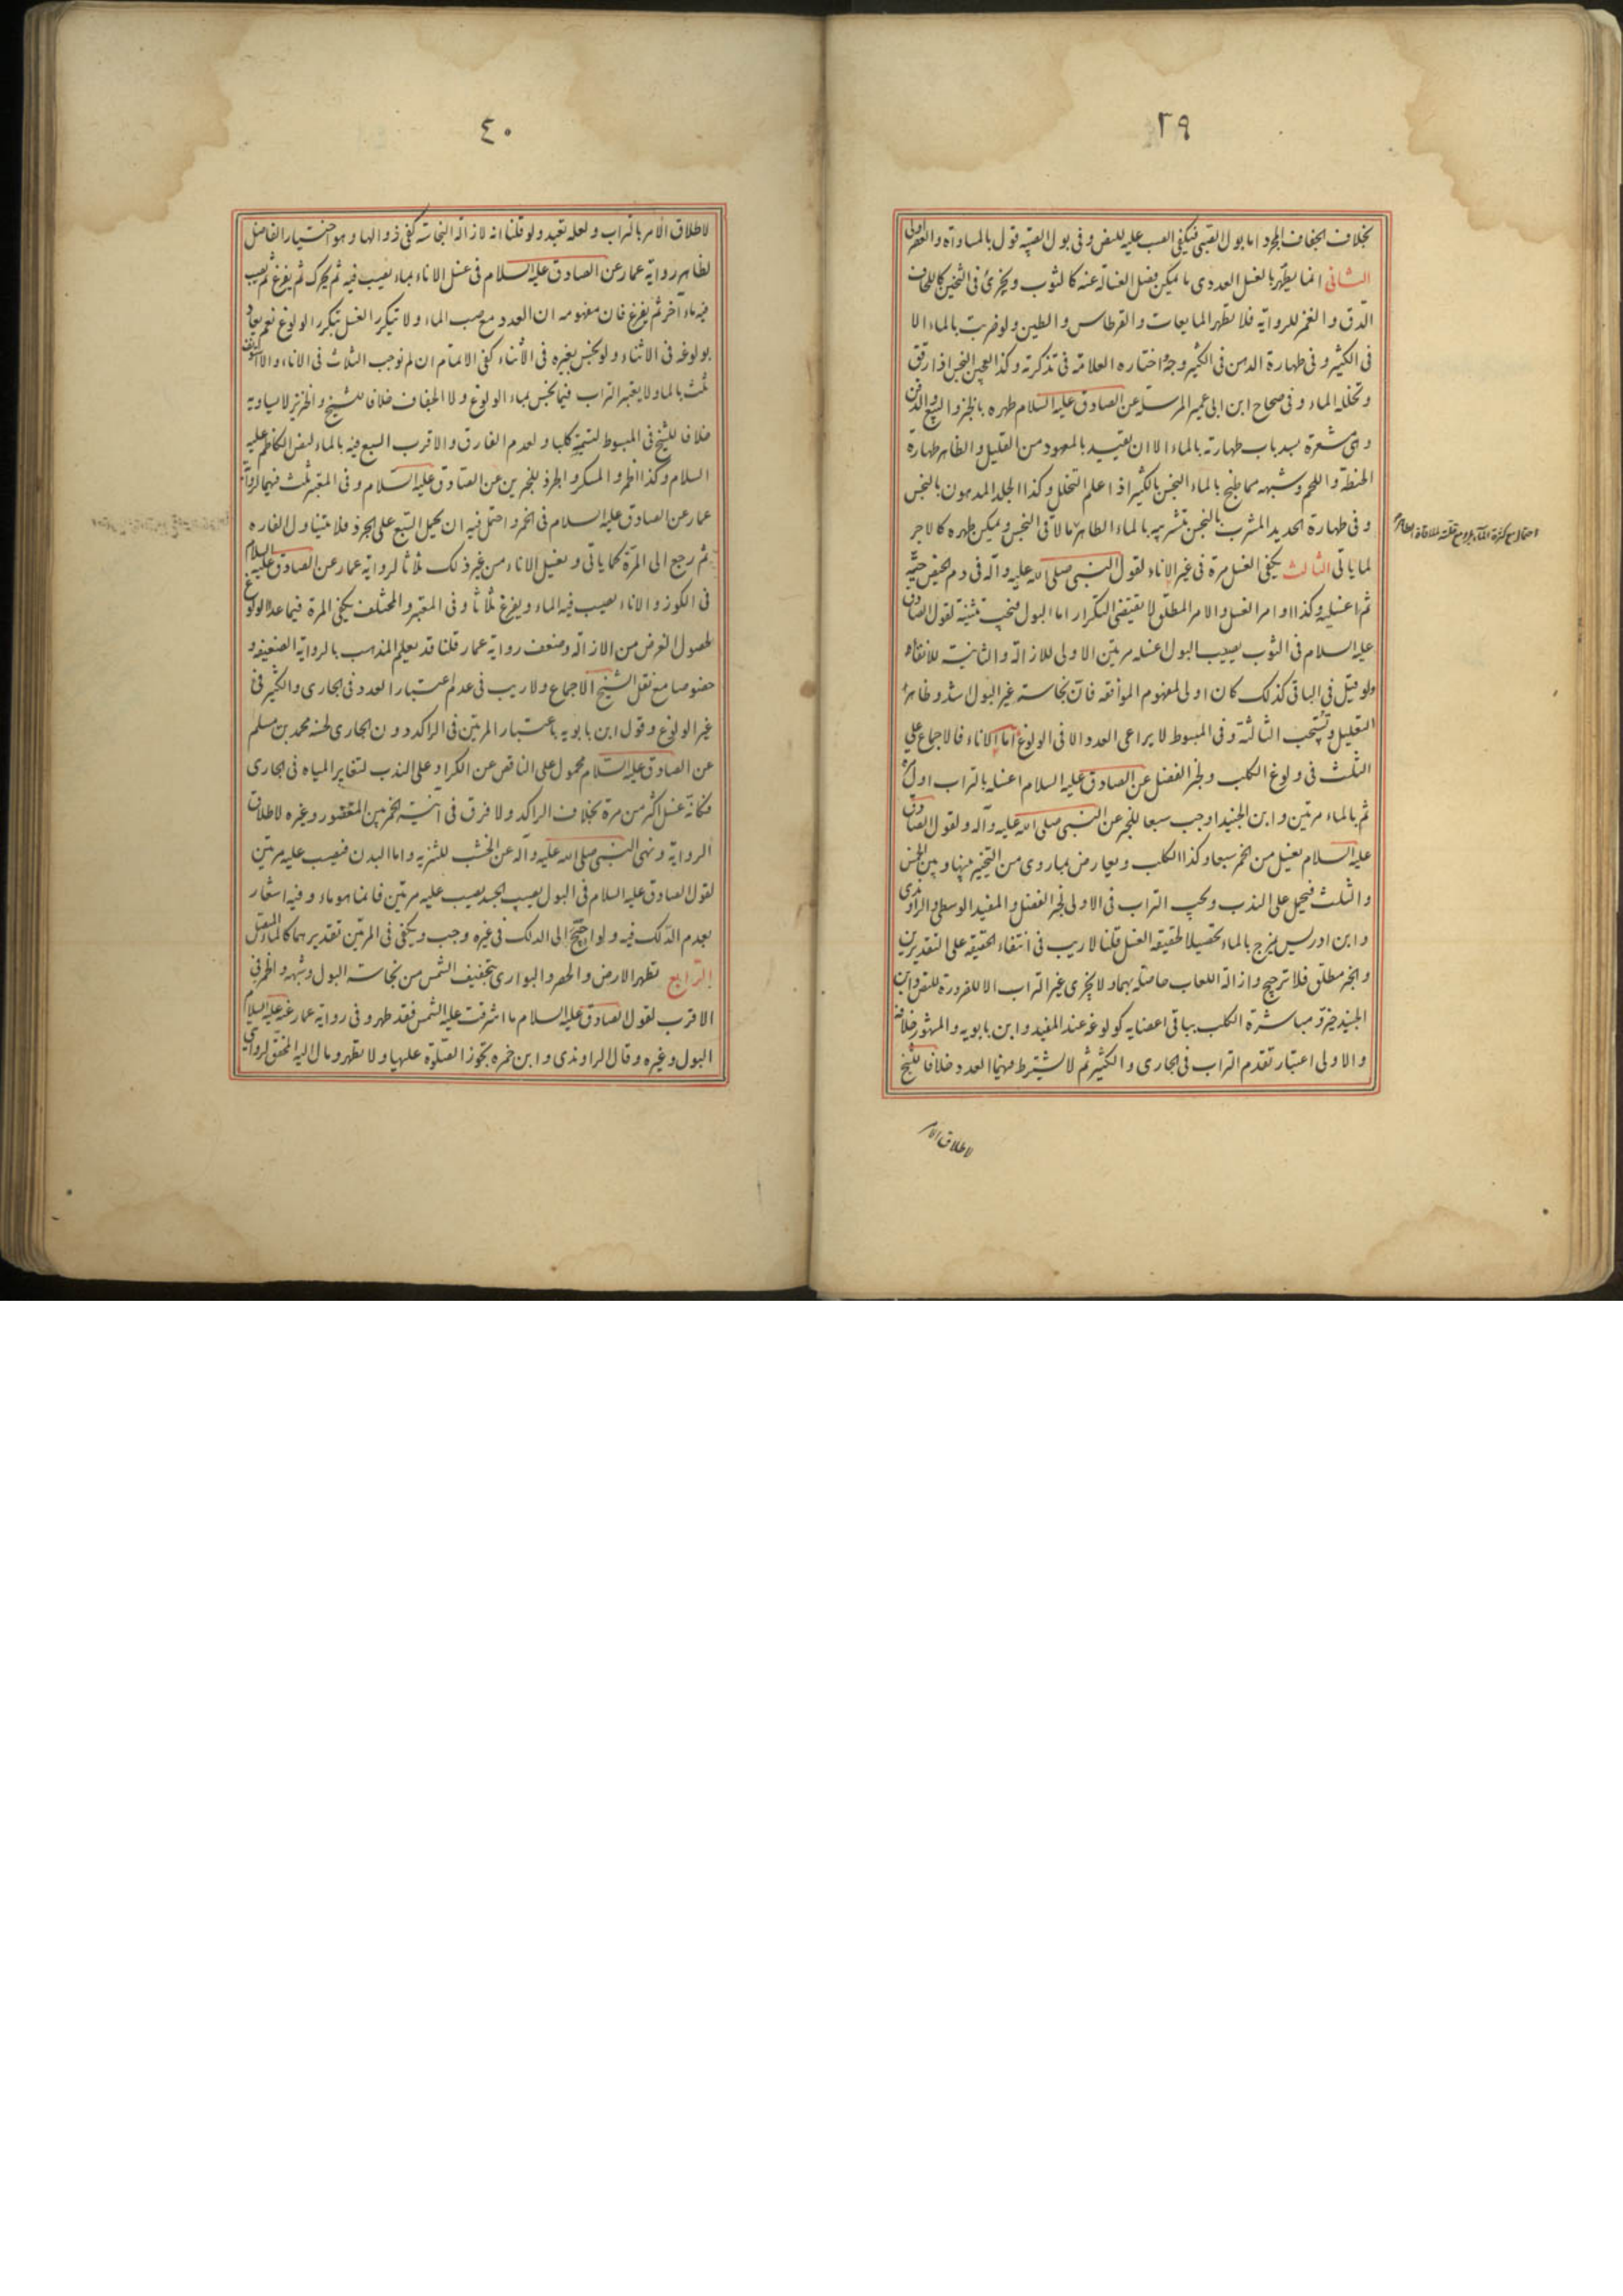 ٣٩
بخلاف الجفاف المجرد اما بول الصبي فيكفي الصب عليه للنص وفى بول الصبية قول بالمساواة والعصر اولى
الثانى انما يطهر بالغسل العددى ما يمكن فصل الغسالة عنه كالثوب ويجزئ فى الثخين كاللحاف
الدق والغمز للرواية فلا تطهر المايعات والقرطاس والطين ولو ضربت بالماء الا
فى الكثير وفى طهارة الدهن فى الكثير وجه اختاره العلامة فى تذكرته وكذا العجين النجس اذا رقق
وتخلله الماء وفى صحاح ابن ابى عمير المرسلة عن الصادق عليه السلام طهره بالخبز والبيع والدفن
وهى مشعرة بسد باب طهارته بالماء الا ان يقيد بالمعهود من القليل والظاهر طهارة
الحنطة واللحم وشبهه مما طبخ بالماء النجس بالكثير اذا علم التخلل وكذا الجلد المدهون بالنجس
وفى طهارة الحديد المشرب بالنجس بتشربه بالماء الطاهر ما لاقى النجس ويمكن طهره كالاجر
لما ياتى الثالث يكفى الغسل مرة فى غير الاناء لقول النبى صلى الله عليه وآله فى دم الحيض حتيه
ثم اغسليه وكذا اوامر الغسل والامر المطلق لا يقتضى التكرار اما البول فيجب تثنيته لقول الصادق
عليه السلام فى الثوب يصيبه البول اغسله مرتين الاولى للازالة والثانية للانقاء
ولو قيل فى الباقى كذلك كان اولى لمفهوم الموافقة فان نجاسة غير البول اشد وظاهر
التعليل وتستحب الثالثة وفى المبسوط لا يراعى العدد الا فى الولوغ اما الاناء فالاجماع على
الثلث فى ولوغ الكلب ولخبر الفضل عن الصادق عليه السلام اغسله بالتراب اول مرة
ثم بالماء مرتين وابن الجنيد اوجب سبعا للخبر عن النبى صلى الله عليه وآله ولقول الصادق
عليه السلام يغسل من الخمر سبعا وكذا الكلب ويعارض بما روى من التخيير بينها وبين الخمس
والثلث فيحمل على الندب ويجب التراب فى الاولى لخبر الفضل والمفيد الوسطى والراوندى
وابن ادريس يمزج بالماء تحصيلا لحقيقة الغسل قلنا لا ريب فى انتفاء الحقيقة على التقديرين
والخبر مطلق فلا ترجيح وازالة اللعاب حاصلة بهما ولا يجزى غير التراب الا للضرورة للنص وابن
الجنيد خير ومباشرة الكلب بباقى اعضايه كولوغه عند المفيد وابن بابويه والمشهور خلافه
والاولى اعتبار تقدم التراب فى الجارى والكثير ثم لا يشترط فيهما العدد خلافا للشيخ
لاطلاق الامر
٤٠
لاطلاق الامر بالتراب ولعله تعبد ولو قلنا انه لازالة النجاسة كفى زوالها وهو اختيار الفاضل
لظاهر رواية عمار عن الصادق عليه السلام فى غسل الاناء بماء يصب فيه ثم يحرك ثم يفرغ ثم يصب
فيه ماء آخر ثم يفرغ فان مفهومه ان العدد مع صب الماء ولا يتكرر الغسل بتكرر الولوغ نعم يعاد
بولوغه فى الاثناء ولو نجس بغيره فى الاثناء كفى الاتمام ان لم نوجب الثلاث فى الاناء والا استؤنف
ثلث بالماء ولا يعتبر التراب فيما نجس بماء الولوغ ولا الجفاف خلافا للشيخ والخنزير لا يساويه
خلافا للشيخ فى المبسوط لتسميته كلبا ولعدم الفارق والاقرب السبع فيه بالماء لنص الكاظم عليه
السلام وكذا الخمر والمسكر والجرذ للخبرين عن الصادق عليه السلام وفى المعتبر ثلث فيهما لرواية
عمار عن الصادق عليه السلام فى الخمر واحتمل فيه ان يحمل السبع على الجرذ فلا يتناول الفارة
ثم رجع الى المرة كما ياتى ويغسل الاناء من غير ذلك ثلاثا لرواية عمار عن الصادق عليه السلام
فى الكوز والاناء يصب فيه الماء ويفرغ ثلاثا وفى المعتبر والمختلف يكفى المرة فيما عدا الولوغ
لحصول الغرض من الازالة وضعف رواية عمار قلنا قد يعلم المذهب بالرواية الضعيفة
خصوصا مع نقل الشيخ الاجماع ولا ريب فى عدم اعتبار العدد فى الجارى والكثير فى
غير الولوغ وقول ابن بابويه باعتبار المرتين فى الراكد دون الجارى لحسنة محمد بن مسلم
عن الصادق عليه السلام محمول على الناقص عن الكر او على الندب لتغاير المياه فى الجارى
فكانه غسل اكثر من مرة بخلاف الراكد ولا فرق فى آنية الخمر بين المغضور وغيره لاطلاق
الرواية ونهى النبى صلى الله عليه وآله عن الخشب للتنزيه واما البدن فيصب عليه مرتين
لقول الصادق عليه السلام فى البول يصيب الجسد يصب عليه مرتين فانما هو ماء وفيه اشعار
بعدم الدلك فيه ولو احتيج الى الدلك فى غيره وجب ويكفى فى المرتين تقديرهما كالماء المتصل
الرابع تطهر الارض والحصر والبوارى بتجفيف الشمس من نجاسة البول وشبهه والخمر فى
الاقرب لقول الصادق عليه السلام ما اشرقت عليه الشمس فقد طهر وفى رواية عمار عنه عليه السلام
البول وغيره وقال الراوندى وابن حمزه بجوز الصلوة عليها ولا تطهر ومال اليه المحقق لرواية